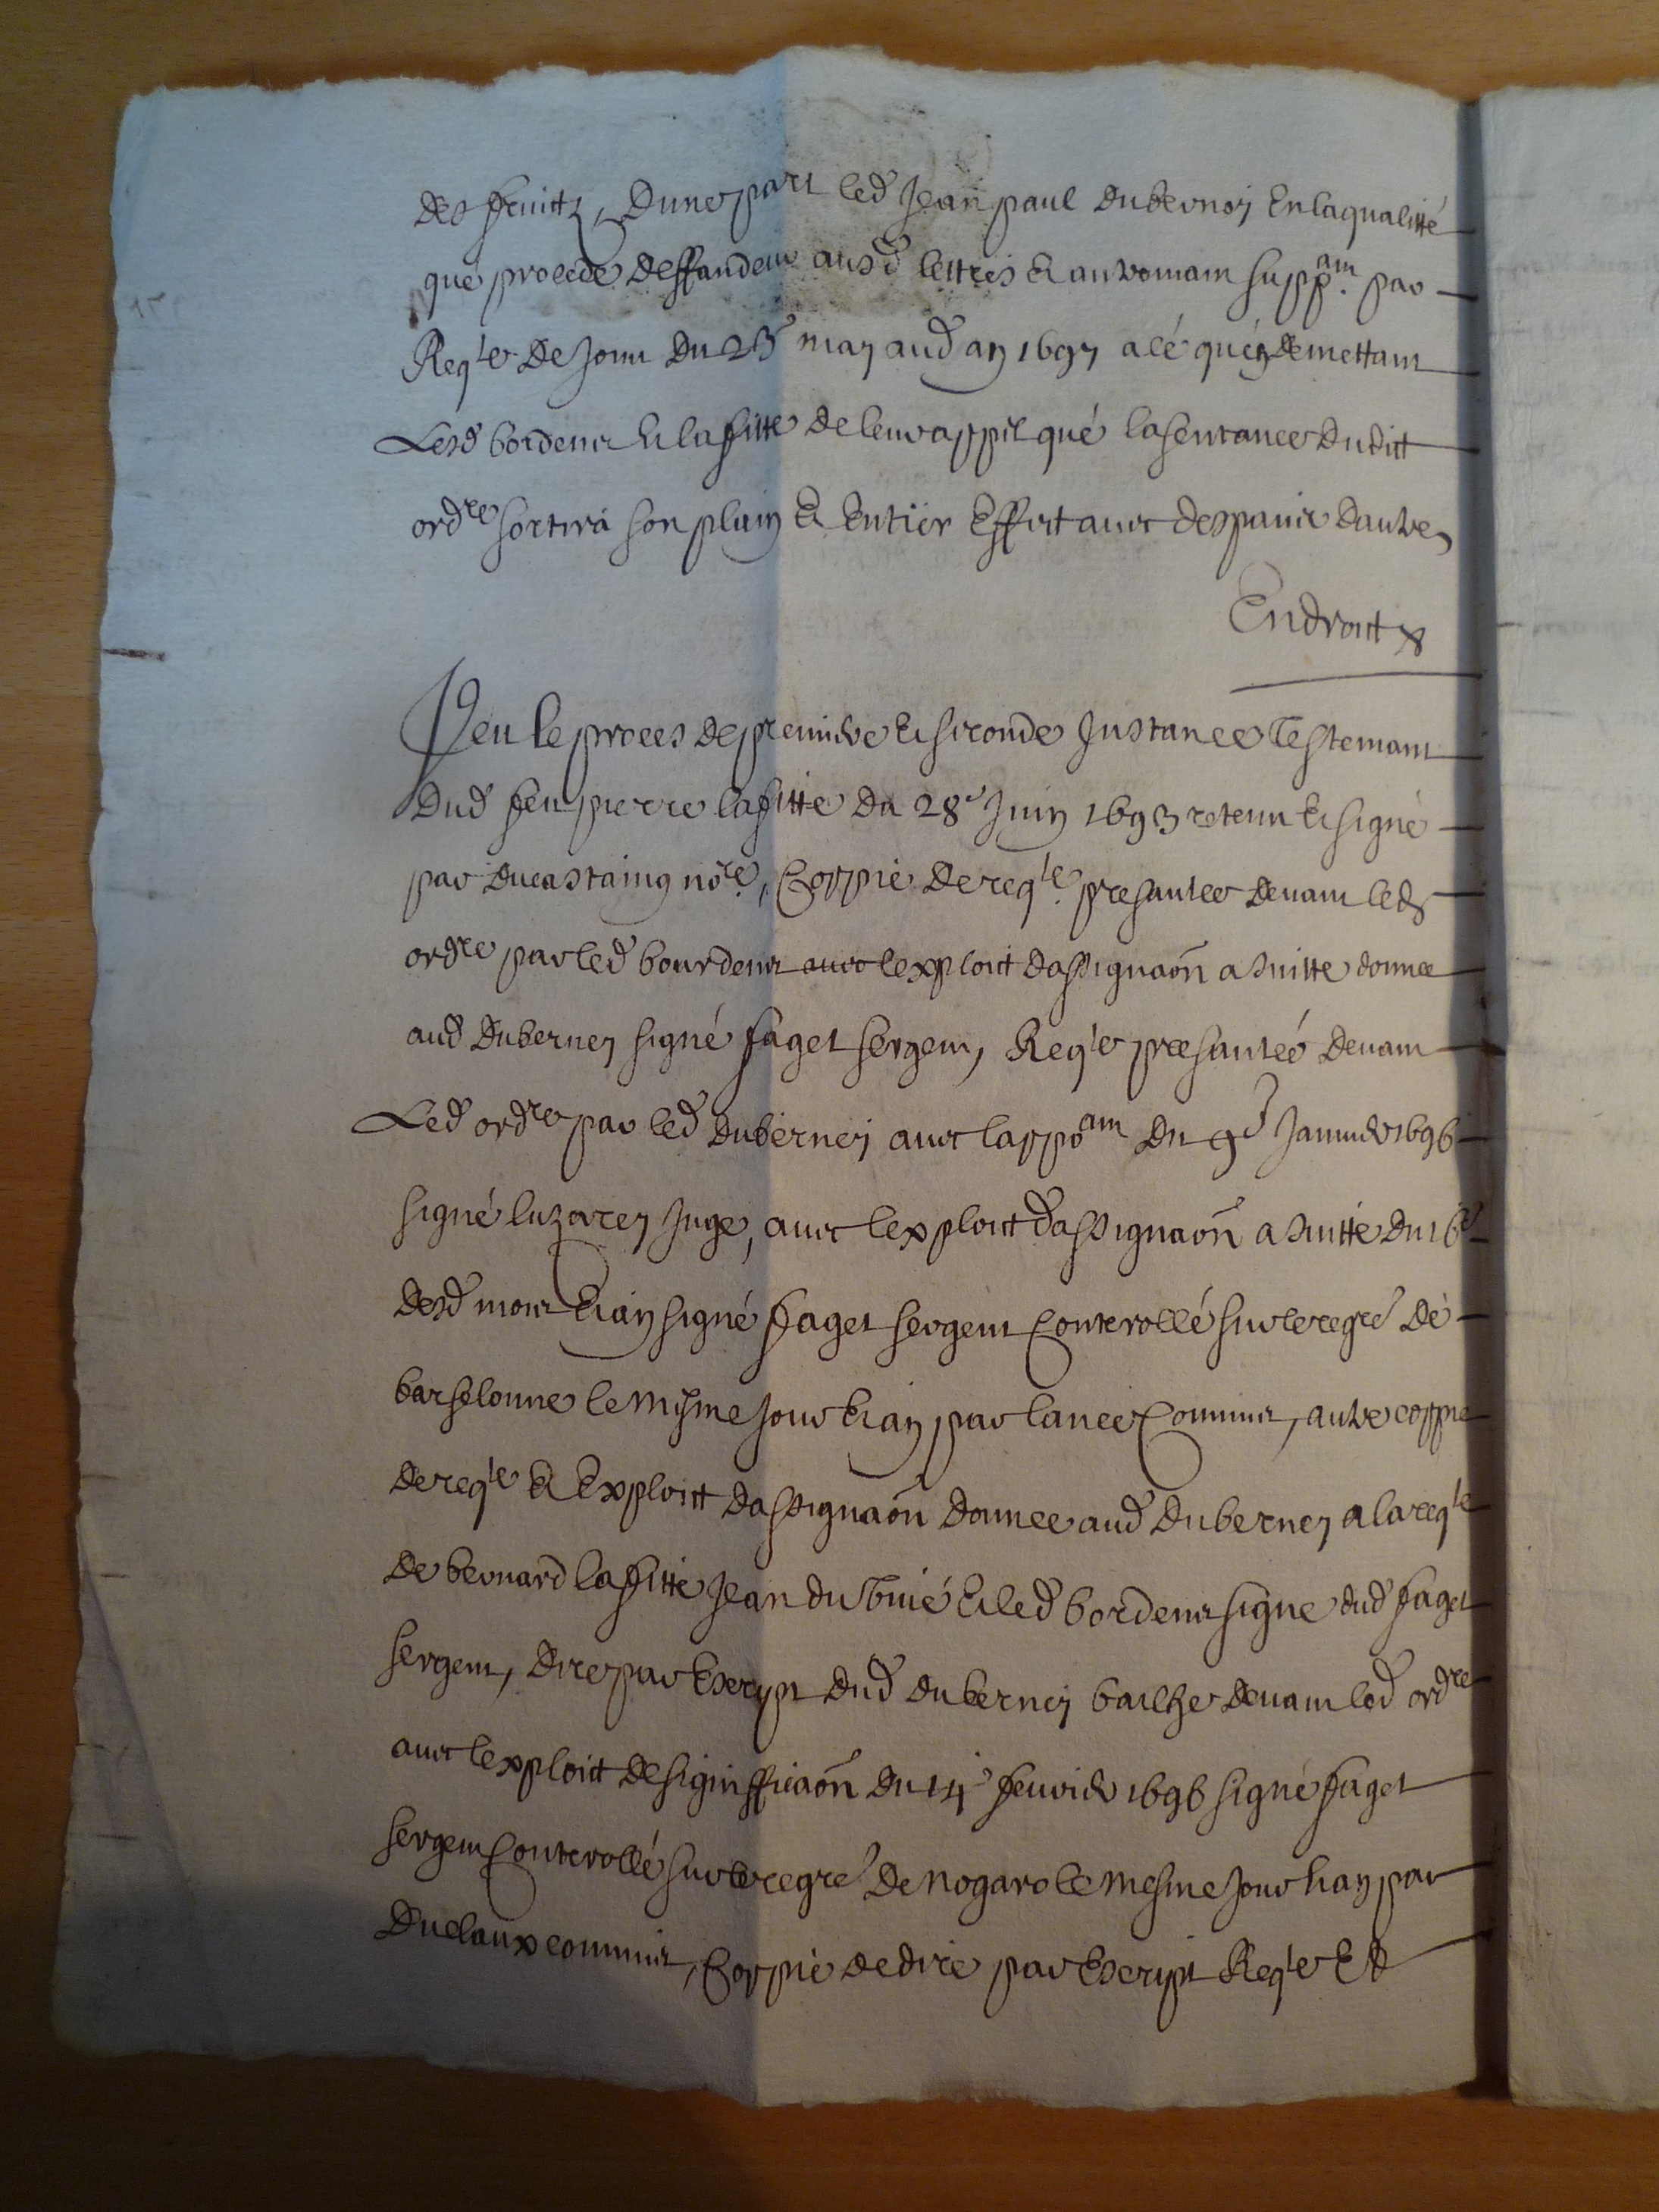 des fruitz, dune part led Jean paul duberney En la qualitté
que procede deffandeur ausd lettres Et autremant supp.ant par
Reqte de Joint du 23e may aud an 1697 a cé quén demettant
Lesd bordenx Et lafitte de leur appel qué la sentance dudit
ordre sortira son plain Et Entiër Effect avec despans dautre
Endroit
Veu le proces de premiere Et seconde Instance Testemant
dud feu pierre lafitte du 28e Juin 1693 retenu Et signé
par ducastaing nore, Coppie de reqte presantee devant led
ordre par led bourdenx avec lexploict dassignaōn a suitte donnee
aud duberney signé faget sergent, Reqte presanteé devant
Led ordre par led duberney avec lappoant du 9e Janvier 1696
signé luzarey Juge, avec lexploict dassignaōn a suitte du 16e
desd mois Et an signé faget sergent Controllé sur le regré de
barselonne le mesme Jour Et an par lance Commis, autre coppie
de reqte Et Exploict dassignaōn donnee aud duberney a la reqte
de bernard lafitte Jean du Et led bordenx signe dud faget
sergent, dire par Escript dud duberney bailhe devant led ordre
avec lexploict de signifficaōn du 14e fevrier 1696 signé faget
sergent Controllé sur le regré de nogaro le mesme Jour han par
duclaux commis, Coppie de dire par Escript Reqte Et